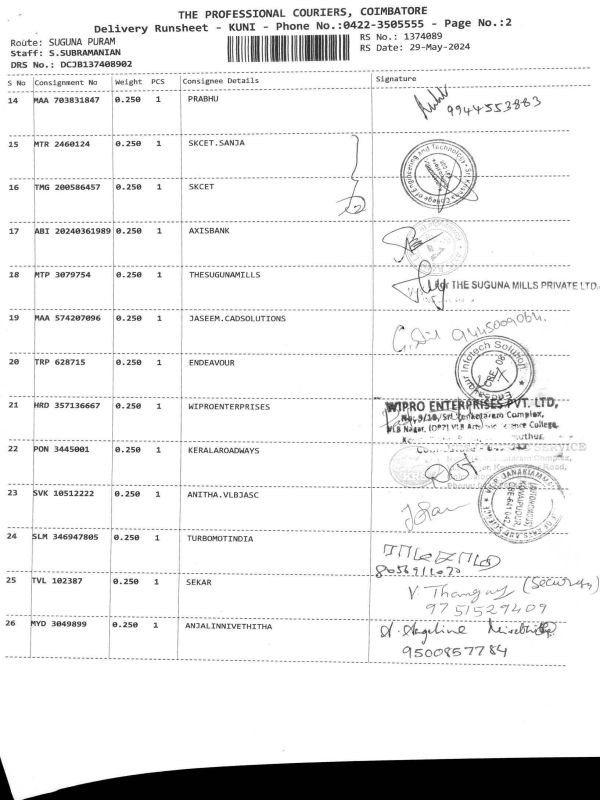 THE PROFESSIONAL COURIERS, COIMBATORE
Delivery Runsheet - KUNI - Phone No.:0422-3505555 - Page No.:2
Route: SUGUNA PURAM RS No.: 1374089
Staff: S.SUBRAMANIAN RS Date: 29-May-2024
DRS No.: DCJB137408902
S No Consignment No Weight PCS Consignee Details Signature
14 MAA 703831847 0.250 1 PRABHU
9944553883
15 MTR 2460124 0.250 1 SKCET.SANJA
16 TMG 200586457 0.250 1 SKCET
17 ABI 20240361989 0.250 1 AXISBANK
18 MTP 3079754 0.250 1 THESUGUNAMILLS
For THE SUGUNA MILLS PRIVATE LTD.
19 MAA 574207096 0.250 1 JASEEM.CADSOLUTIONS
9445009064.
20 TRP 628715 0.250 1 ENDEAVOUR
Infotech Solution
CBE 08
21 HRD 357136667 0.250 1 WIPROENTERPRISES
WIPRO ENTERPRISES PVT. LTD,
No. 9/10, Sri Venketaram Complex,
VLB Nagar, (OPP) VLB Arts College,
22 PON 3445001 0.250 1 KERALAROADWAYS
23 SVK 10512222 0.250 1 ANITHA.VLBJASC
24 SLM 346947805 0.250 1 TURBOMOTINDIA
25 TVL 102387 0.250 1 SEKAR
(Security)
9751529409
26 MYD 3049899 0.250 1 ANJALINNIVETHITHA
9500857784